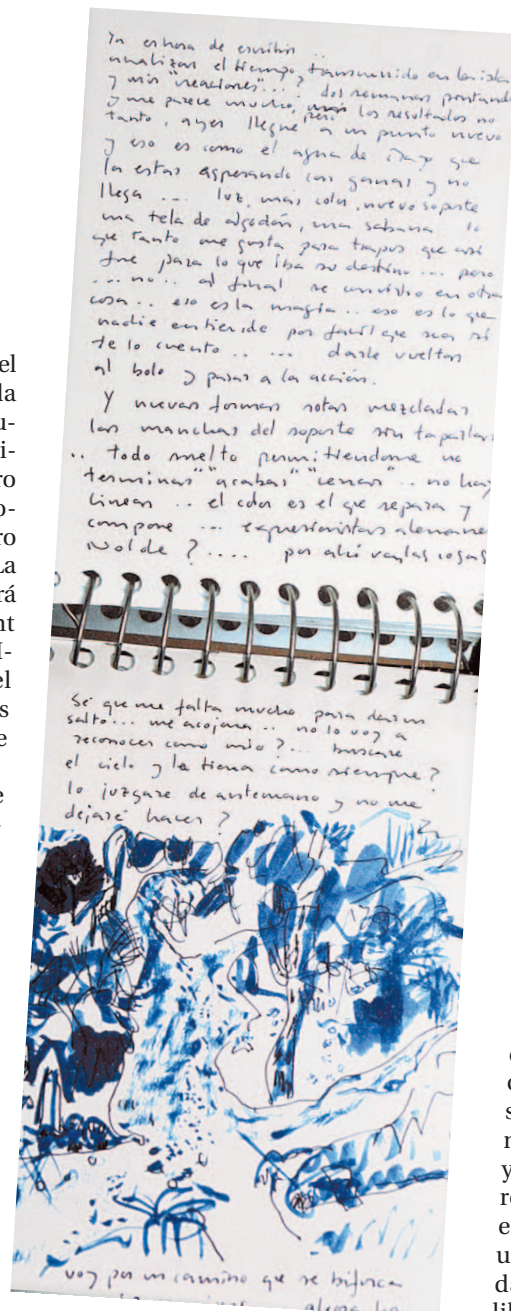 Ya es hora de escribir ..
analizar el tiempo, transcurrido en la isla
y mis "reacciones"...? dos semanas pintando
y me parece mucho, pero los resultados no
tanto, ayer llegué a un punto nuevo
y eso es como el agua de mayo que
la estas esperando con ganas y no
llega ... luz, mas color, nuevo soporte
una tela de algodón, una sabana lo
que tanto me gusta para trapos que así
fue para lo que iba su destino ... pero
... no .. al final se convirtio en otra
cosa .. eso es la magia .. eso es lo que
nadie entiende por facil que sea si
te lo cuento .. ... darle vueltas
al bolo y pasar a la acción.
Y nuevas formas rotas mezcladas
las manchas del soporte sin taparlas
.. todo suelto permitiendome no
terminar" "acabar" "cerrar" .. no hay
lineas .. el color es el que separa y
compone ... expresionistas alemanes
Nolde ? .... por ahí van las cosas
Sé que me falta mucho para dar un
salto... me acojona .. no lo voy a
reconocer como mio ? ... buscare
el cielo y la tierra como siempre ?
lo juzgare de antemano y no me
dejaré hacer ?
voy por un camino que se bifurca
el
da
u-
i-
ro
o-
ro
La
rá
nt
I-
el
s
e
e
y
r
e
u
da
lib